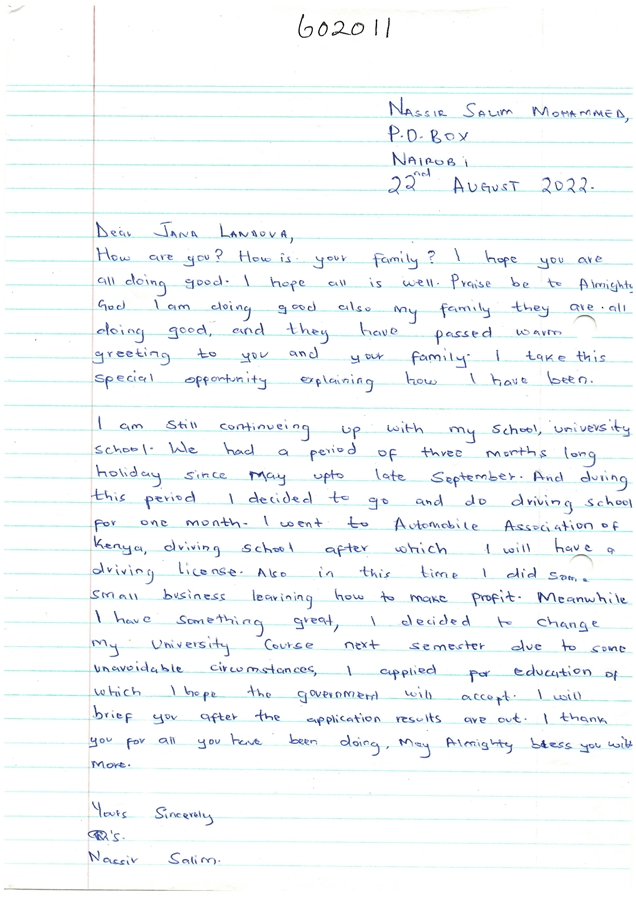 602011
NASSIR SALIM MOHAMMED,
P.O. BOX
NAIROBI
22nd AUGUST 2022.
Dear JANA LANDOVA,
How are you? How is your family? I hope you are
all doing good. I hope all is well. Praise be to Almighty
God I am doing good also my family they are all
doing good, and they have passed warm
greeting to you and your family. I take this
special opportunity explaining how I have been.
I am still continueing up with my school, university
school. We had a period of three months long
holiday since May upto late September. And during
this period I decided to go and do driving school
for one month. I went to Automobile Association of
Kenya, driving school after which I will have a
driving license. Also in this time I did some
small business learining how to make profit. Meanwhile
I have something great, I decided to change
my University Course next semester due to some
unavoidable circumstances, I applied for education of
which I hope the government will accept. I will
brief you after the application results are out. I thank
you for all you have been doing, May Almighty bless you with
more.
Yours Sincerely
Nassir Salim.